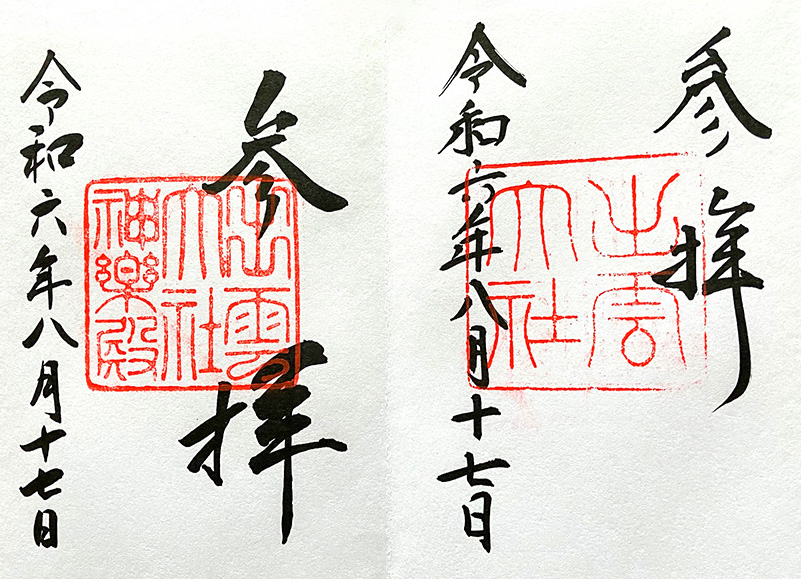 参拝
出雲
大社
令和六年八月十七日
参拝
出雲
大社
神楽殿
令和六年八月十七日